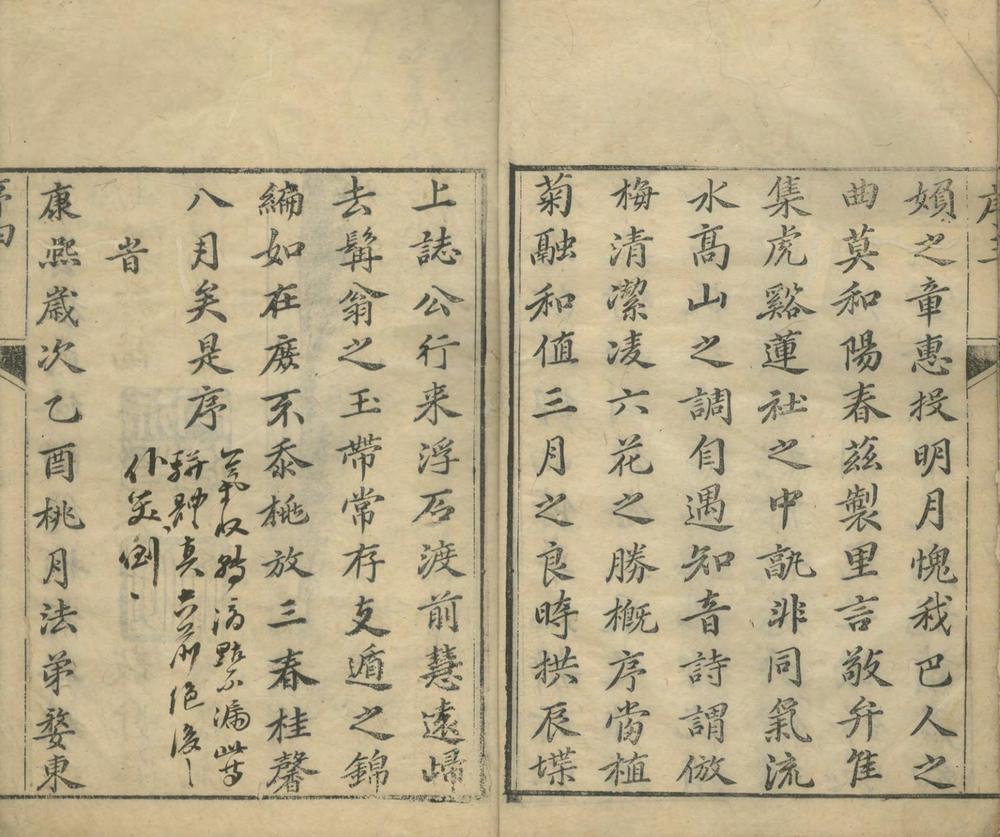 嬪之章惠投明月愧我巴人之
曲莫和陽春茲製里言敬弁隹
集虎谿蓮社之中孰非同氣流
水髙山之調自遇知音詩謂倣
梅清潔凌六花之勝概序當植
菊融和值三月之良時拱辰堞
上誌公行来浮石渡前慧遠歸
去髯翁之玉帶常存支遁之錦
編如在廢不黍桃放三春桂馨
八月矣是序
氣收 滴點不漏此等
駢體真六 絕後
仆 倒
旹
康熙歲次乙酉桃月法弟婺東
序四